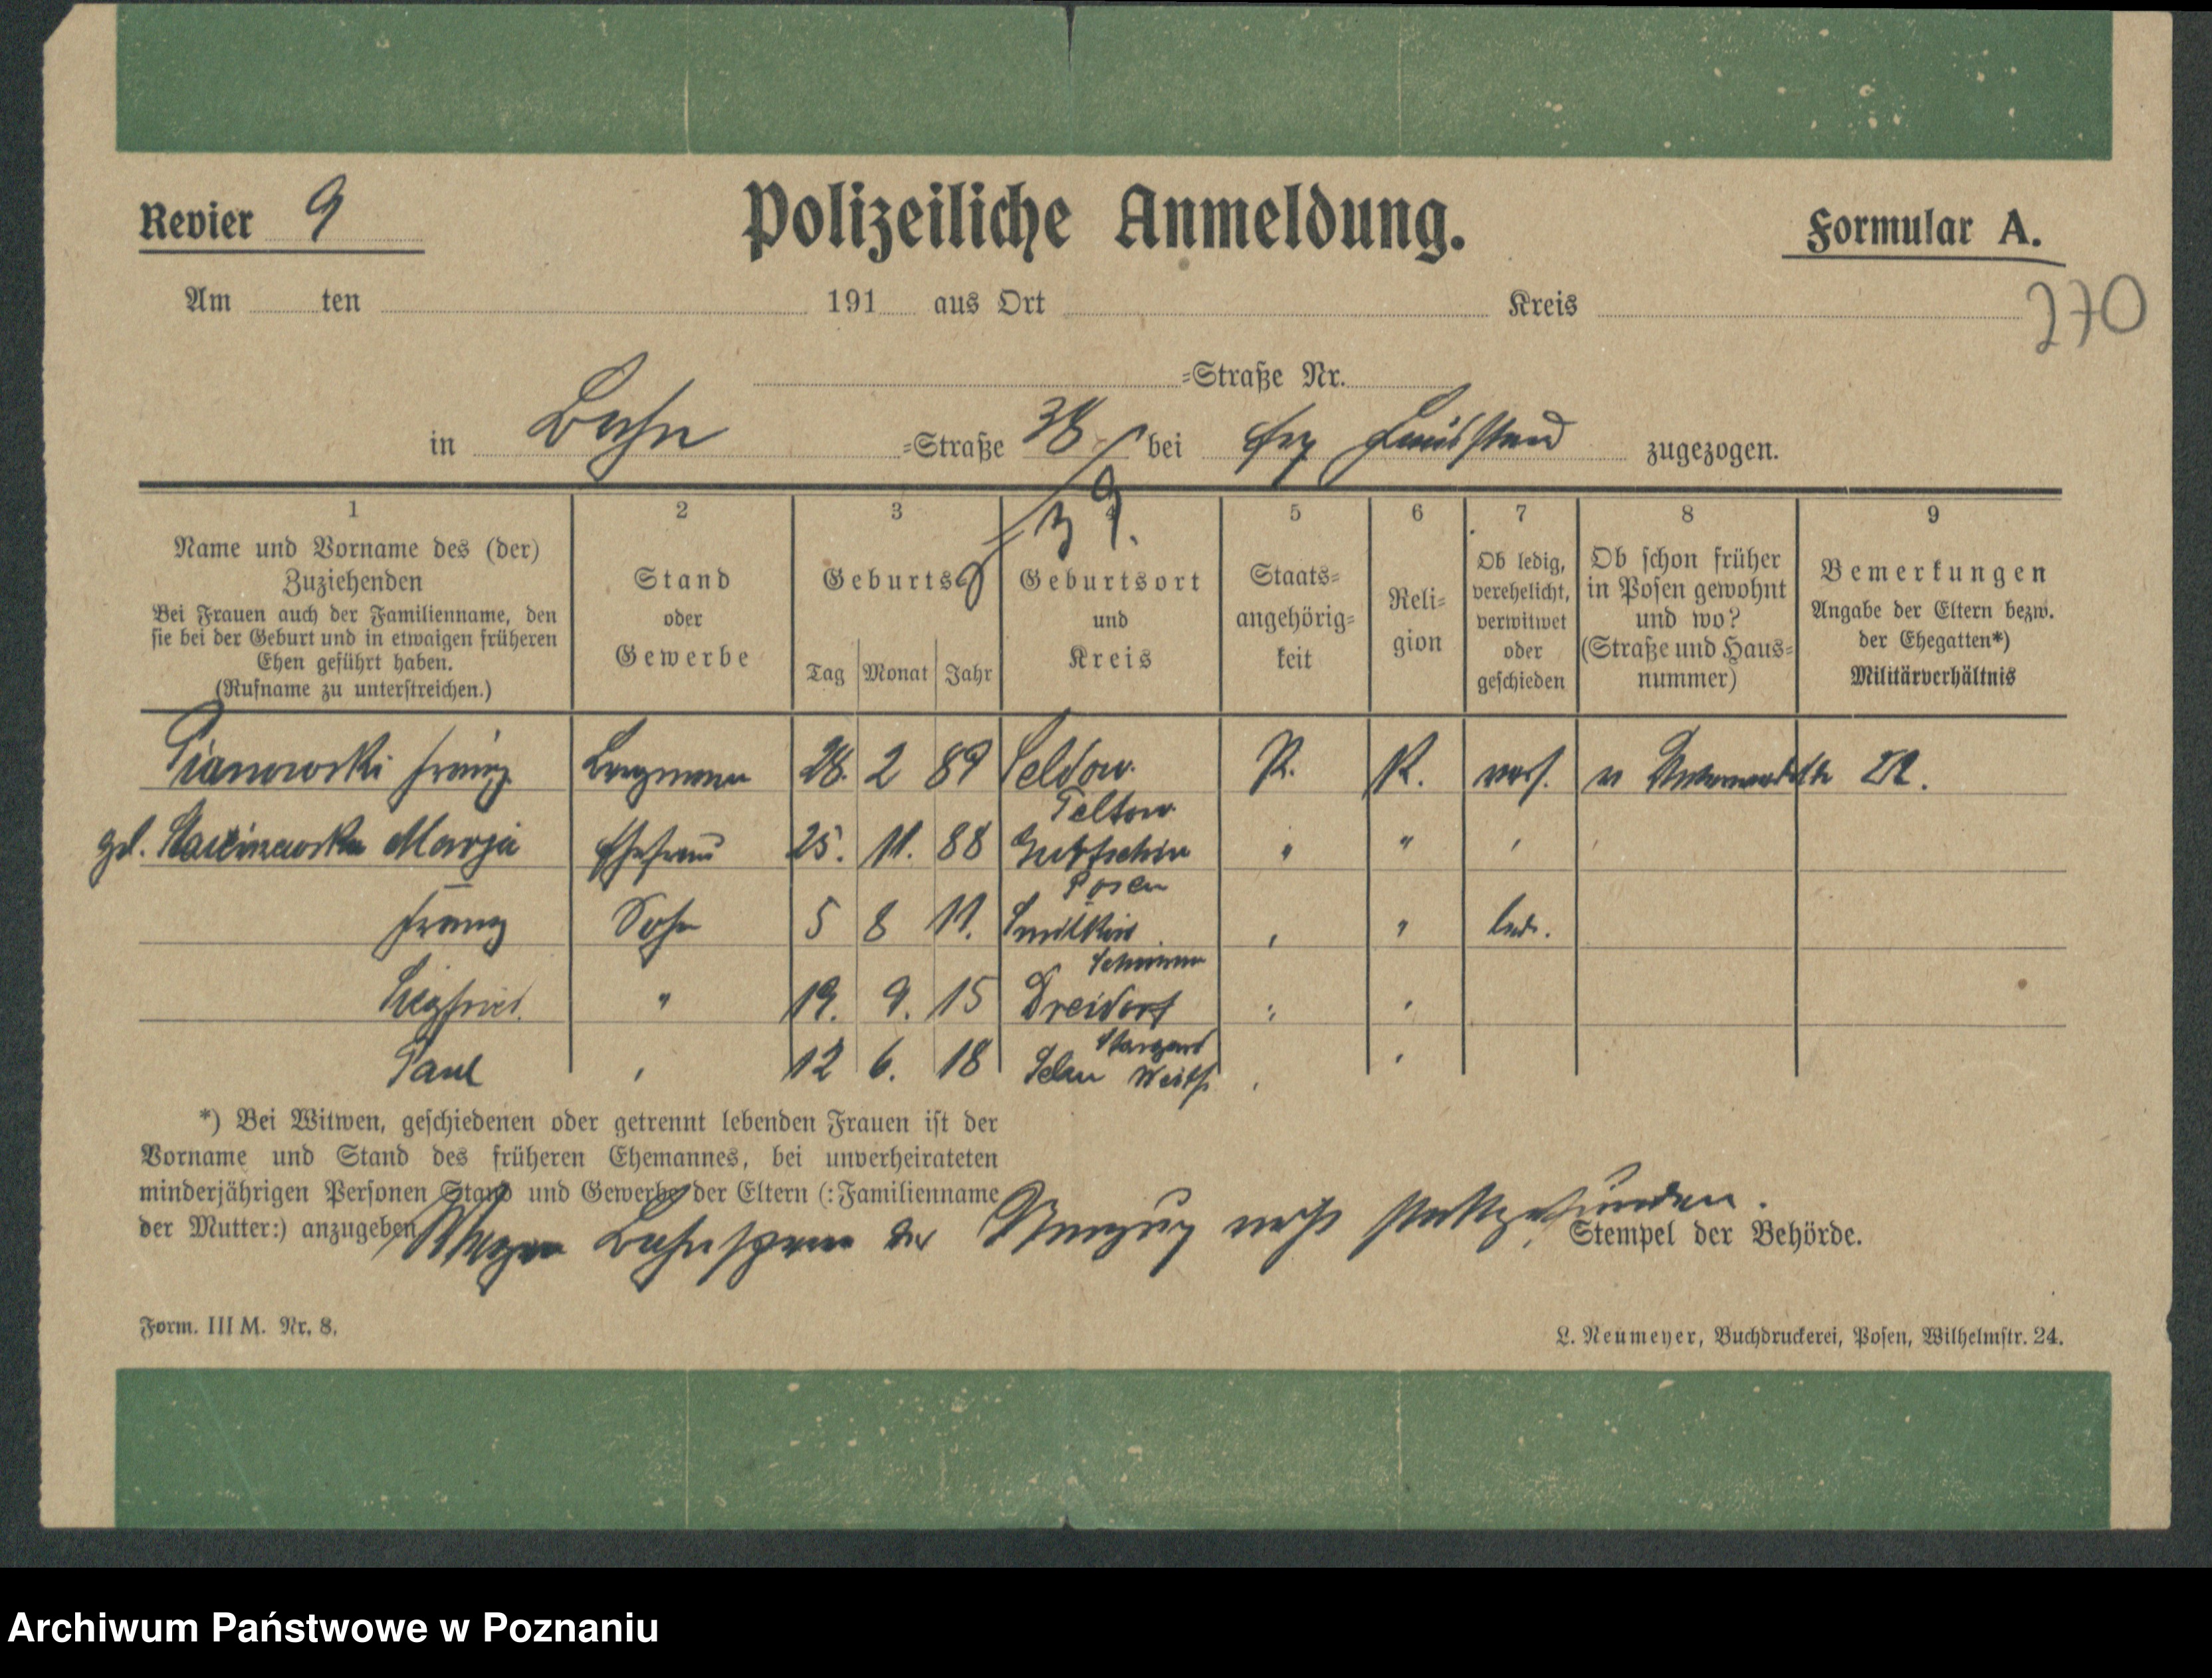 Revier 9 Polizeiliche Anmeldung. Formular A.
Am ten 191 aus Ort Kreis 270
=Straße Nr.
in Bahn =Straße 38 bei zugezogen.
1 2 3 4 5 6 7 8 9
Name und Vorname des (der) Zuziehenden
Bei Frauen auch der Familienname, den
sie bei der Geburt und in etwaigen früheren
Ehen geführt haben.
(Rufname zu unterstreichen.)
Stand
oder
Gewerbe
Geburts=
Tag Monat Jahr
Geburtsort
und
Kreis
Staats=
angehörig=
keit
Reli=
gion
Ob ledig,
verehelicht,
verwitwet
oder
geschieden
Ob schon früher
in Posen gewohnt
und wo?
(Straße und Haus=
nummer)
Bemerkungen
Angabe der Eltern bezw.
der Ehegatten*)
Militärverhältnis
Pianowski Franz Bergmann 28. 2 89 Seldow. P. K. verh.
Teltow
geb. Marja Ehefrau 25. 11. 88 " "
Posen
Franz Sohn 5 8 11. " " led.
Schrimm
Siegfried. " 19. 9. 15 Dreidorf " "
Stargard
Paul " 12 6. 18 Westf. " "
*) Bei Witwen, geschiedenen oder getrennt lebenden Frauen ist der
Vorname und Stand des früheren Ehemannes, bei unverheirateten
minderjährigen Personen Stand und Gewerbe der Eltern (:Familienname
der Mutter:) anzugeben.
Wegen Bahnsperre der Umzug nicht stattgefunden.
Stempel der Behörde.
Form. III M. Nr. 8.
L. Neumeyer, Buchdruckerei, Posen, Wilhelmstr. 24.
Archiwum Państwowe w Poznaniu